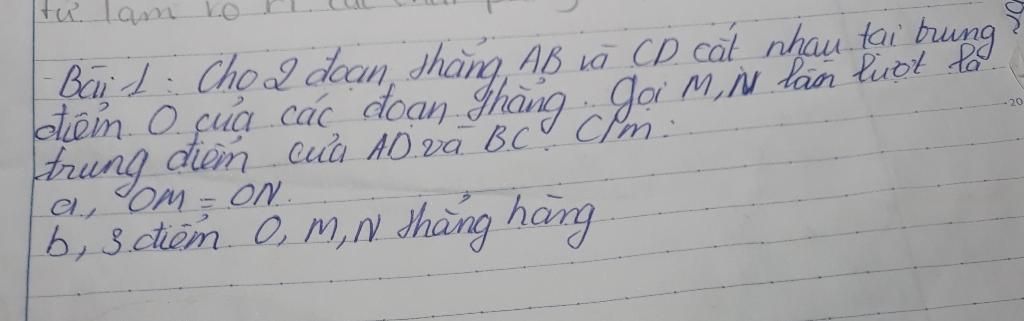 tự làm rõ rì các
Bài 1: Cho 2 đoạn thẳng AB và CD cắt nhau tại trung
điểm O của các đoạn thẳng. Gọi M, N lần lượt là
trung điểm của AD và BC. C/m:
a, OM = ON.
b, 3 điểm O, M, N thẳng hàng